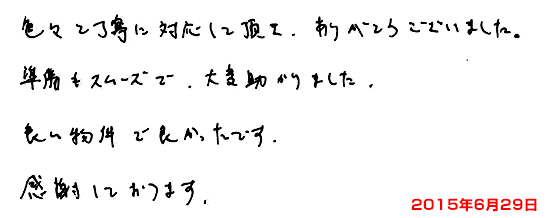 色々と丁寧に対応して頂き、ありがとうございました。
準備もスムーズで、大変助かりました。
良い物件で良かったです。
感謝しております。
2015年6月29日